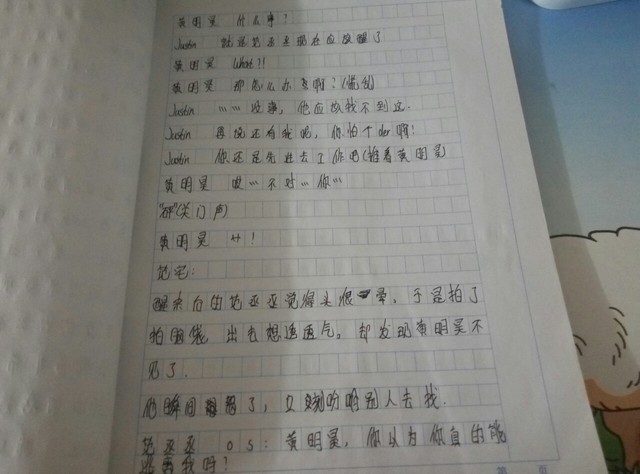 黄明昊 什么事?
Justin 就是范丞丞现在应该醒了
黄明昊 What?!
黄明昊 那怎么办了啊?(慌乱)
Justin …… 没事,他应该找不到这.
Justin 再说还有我呢,你怕个der啊!
Justin 你还是先进去了你吧(推着黄明昊)
黄明昊 哎… 不对… 你…
"砰"(关门声)
黄明昊 艹!
范宅:
醒来后的范丞丞觉得头很晕,于是拍了
拍脑袋,出去想透透气。却发现黄明昊不
见了.
他瞬间 了,立刻吩咐别人去找.
范丞丞 os:黄明昊,你以为你真的能
逃离我吗?